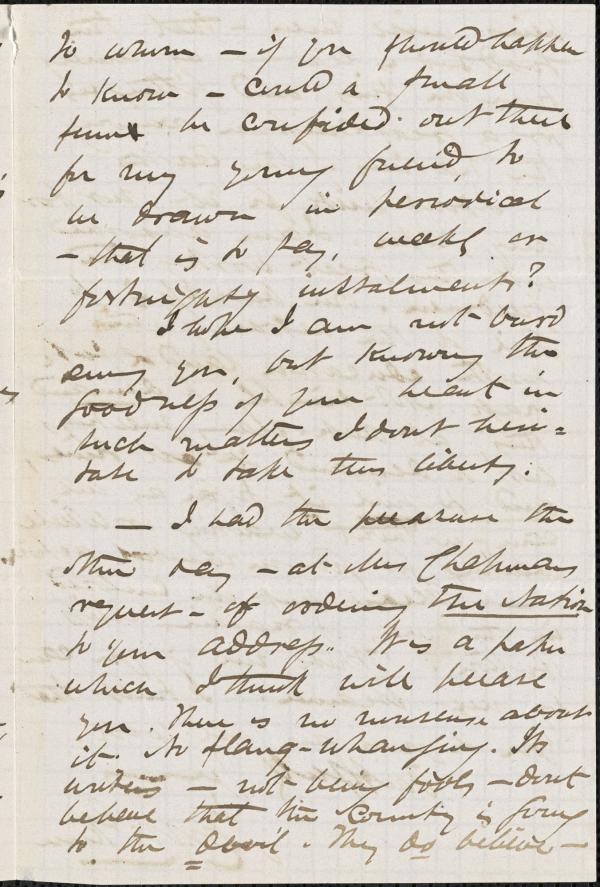 to whom - if you should happen
to know - could a small
sum be confided out there
for my young friend, to
be drawn in periodical
- that is to say, weekly or
fortnightly instalments?
I hope I am not burd
ening you, but knowing the
goodness of your heart in
such matters I dont hesi=
tate to take this liberty.
- I had the pleasure the
other day - at Mrs Chapmans
request - of ordering the Nation
to your address. It is a paper
which I think will please
you. There is no nonsense about
it. No slang-whanging. Its
writers - not being fools - dont
believe that the Country is going
to the devil. They do believe -